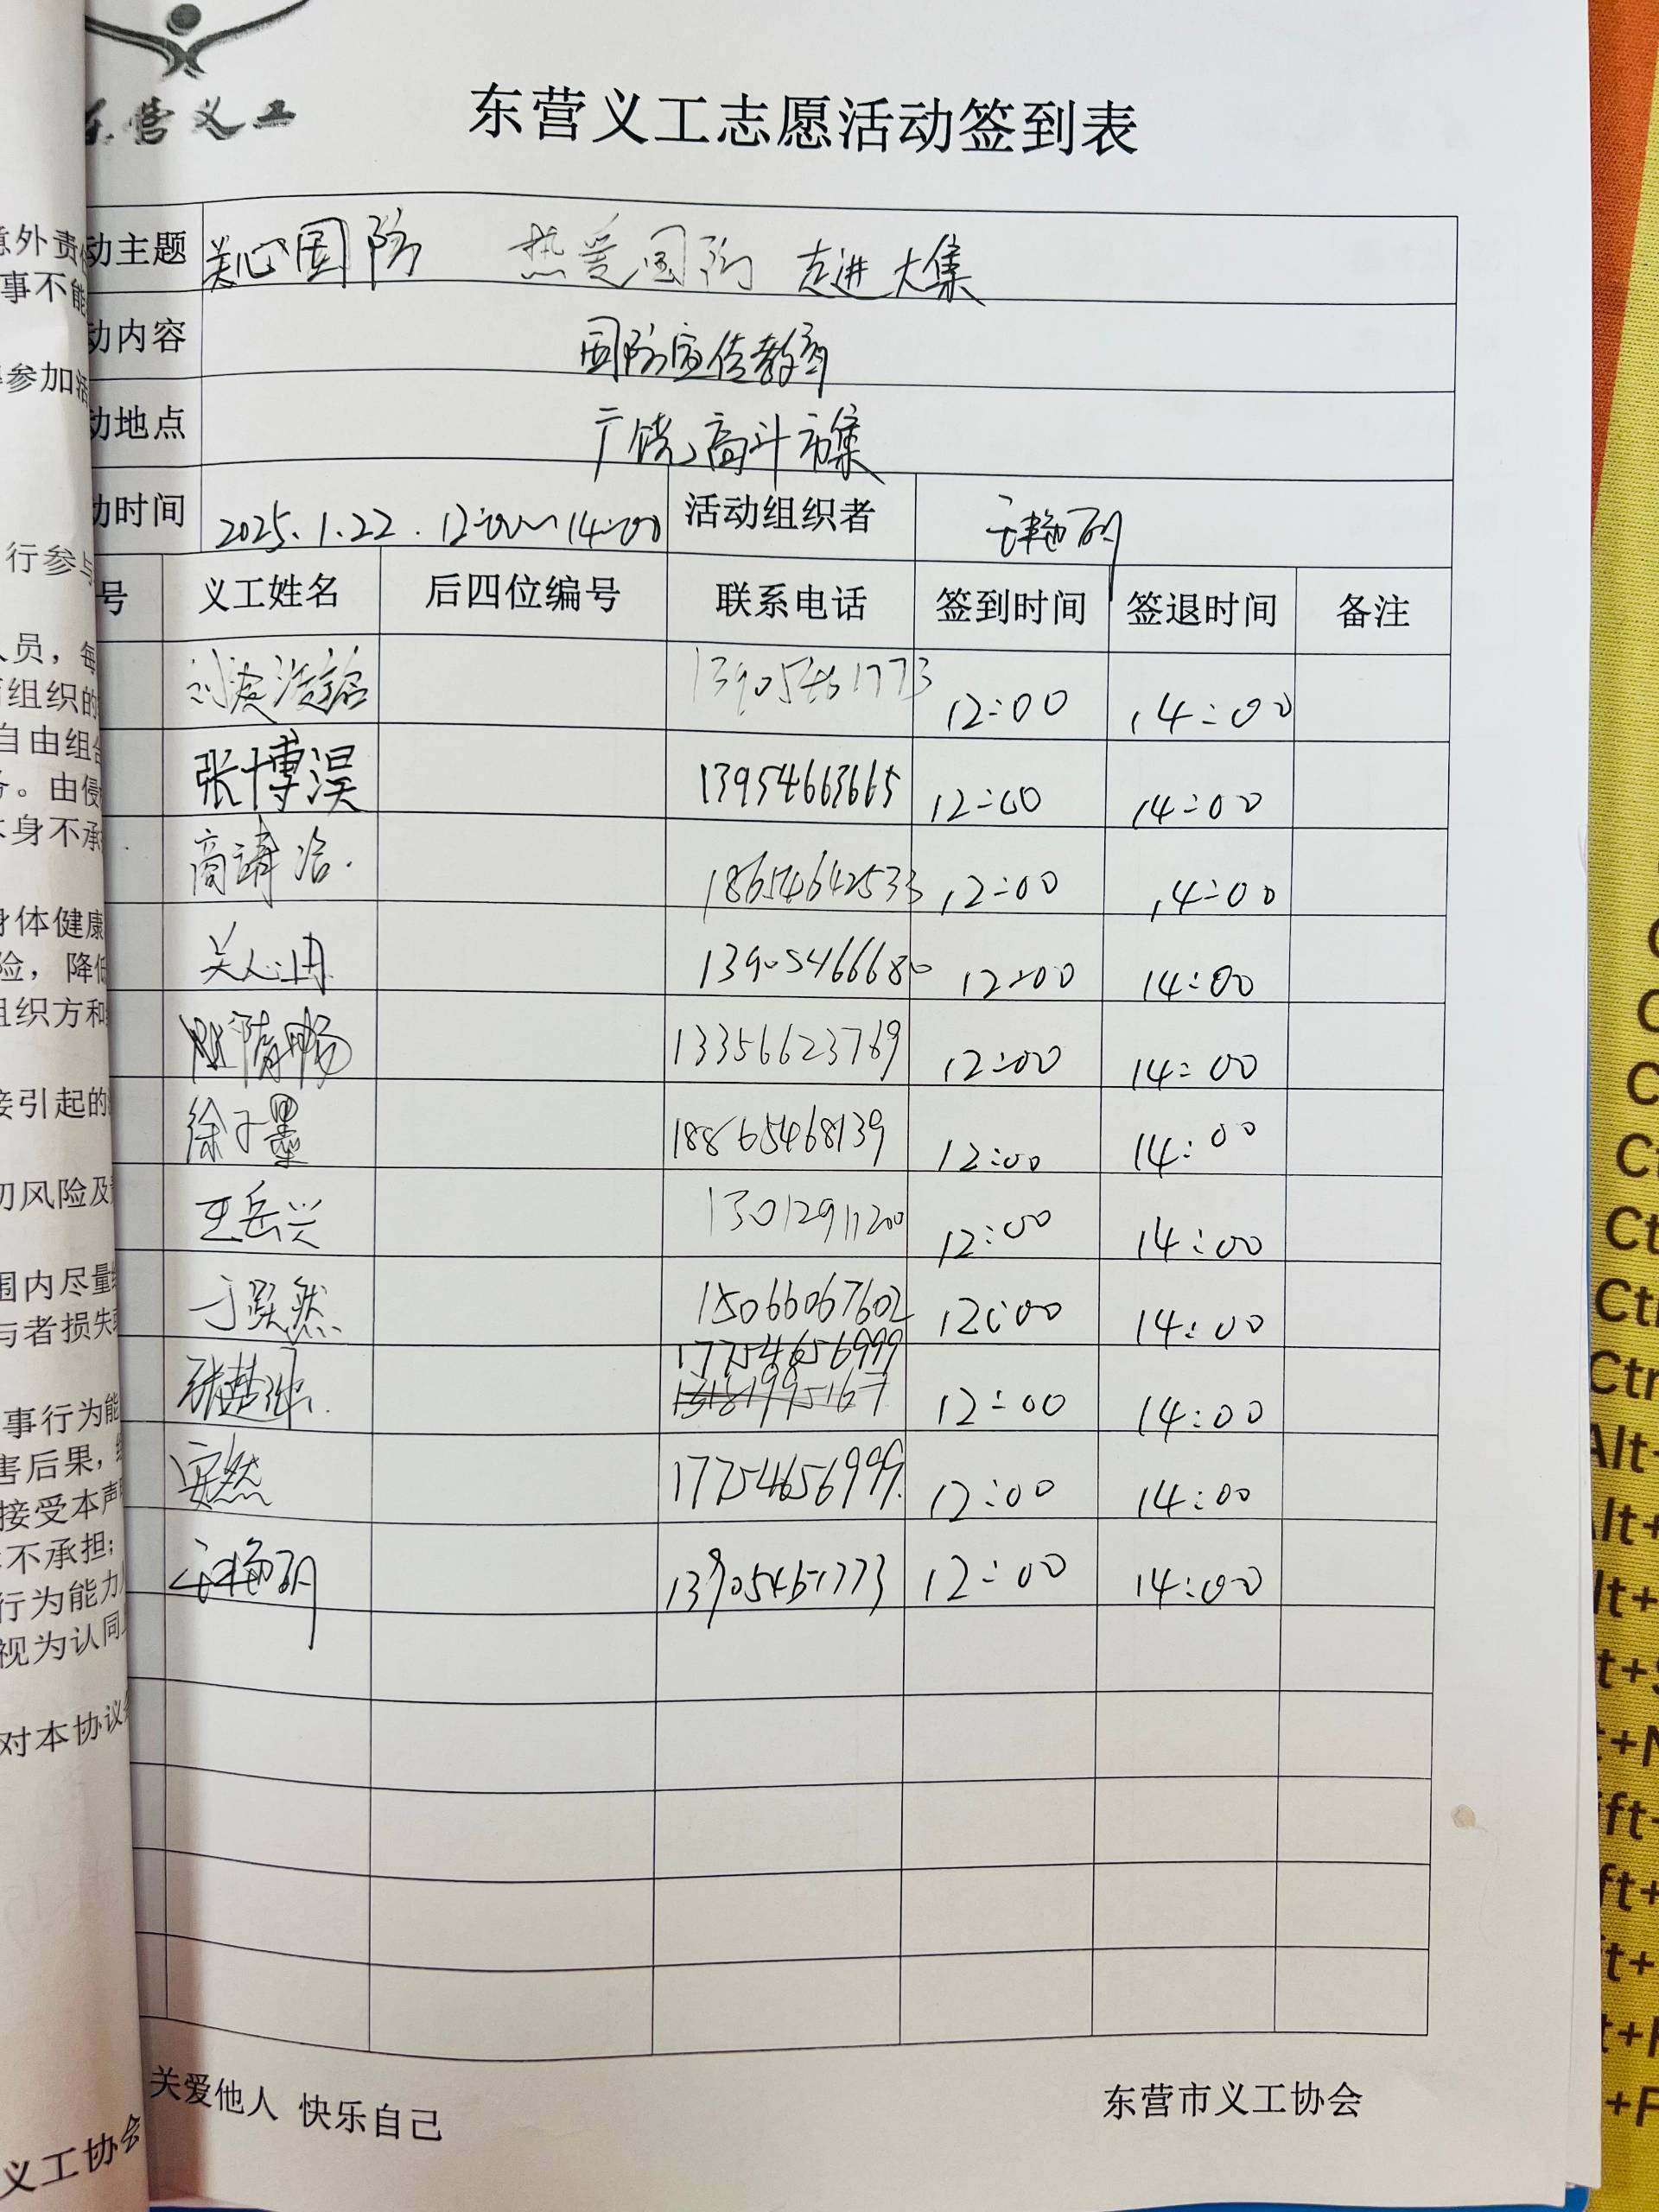 东营义工
东营义工志愿活动签到表
动主题 关心国防 热爱国防 走进大集
动内容 国防宣传教育
动地点 广饶高斗市集
动时间 2025.1.22. 12:00~14:00 活动组织者
号 义工姓名 后四位编号 联系电话 签到时间 签退时间 备注
13905461773 12:00 14:00
张博淏 13954663665 12:00 14:00
18654642533 12:00 14:00
13905466680 12:00 14:00
13356623769 12:00 14:00
徐子墨 18865468139 12:00 14:00
王岳兴 13012911200 12:00 14:00
于 然 15066067602 12:00 14:00
张楚 17754656999 12:00 14:00
安然 17754656999. 12:00 14:00
13905461773 12:00 14:00
关爱他人 快乐自己
东营市义工协会
意外责
事不能
参加活
行参与
人员，每
组织的
自由组合
。由侵
身不承
身体健康
险，降低
组织方和
接引起的
风险及
围内尽量
与者损失
事行为能
害后果，
接受本声
不承担；
行为能力
视为认同
对本协议
义工协会
Ctr
Ctr
Alt+
lt+
lt+
t+S
t+N
ft+
ft+
t+
t+F
+F